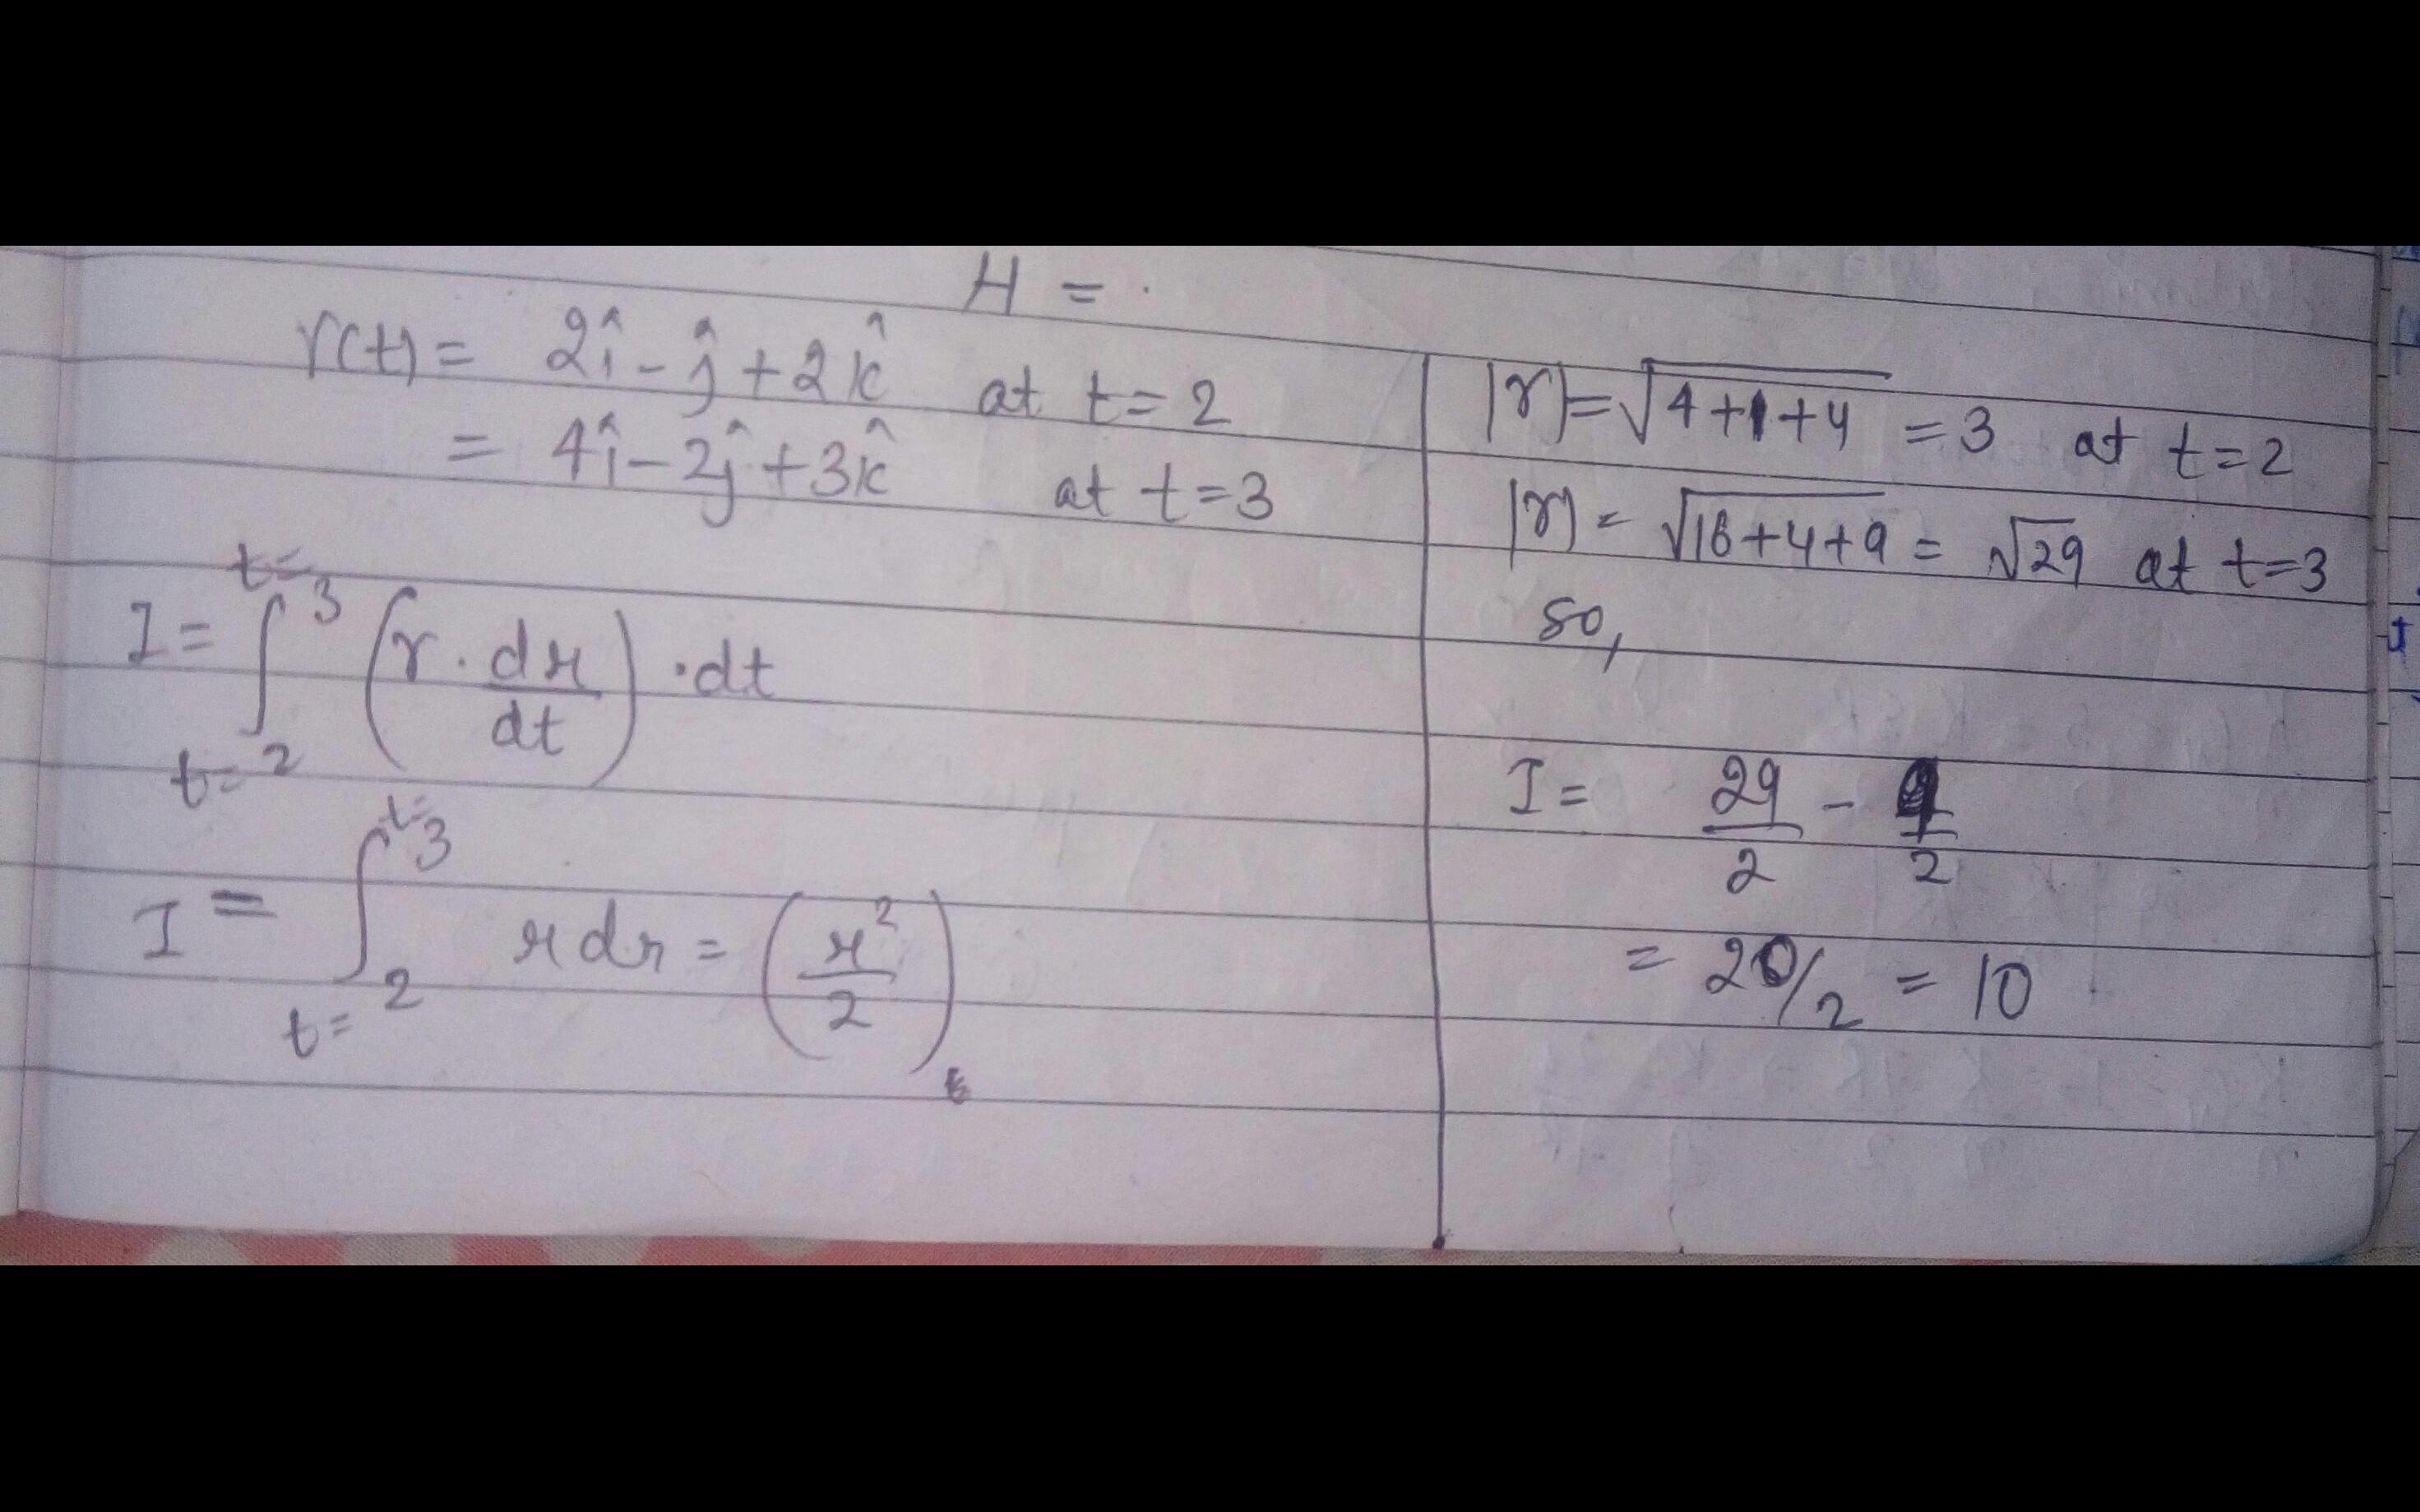 H = .
r(t) = 2î - ĵ + 2k̂ at t = 2
= 4î - 2ĵ + 3k̂ at t = 3
I = ∫_{t=2}^{t=3} (r . dr/dt) . dt
I = ∫_{t=2}^{t=3} r dr = (r²/2)
|r| = √(4+1+4) = 3 at t = 2
|r| = √(16+4+9) = √29 at t = 3
so,
I = 29/2 - 9/2
= 20/2 = 10